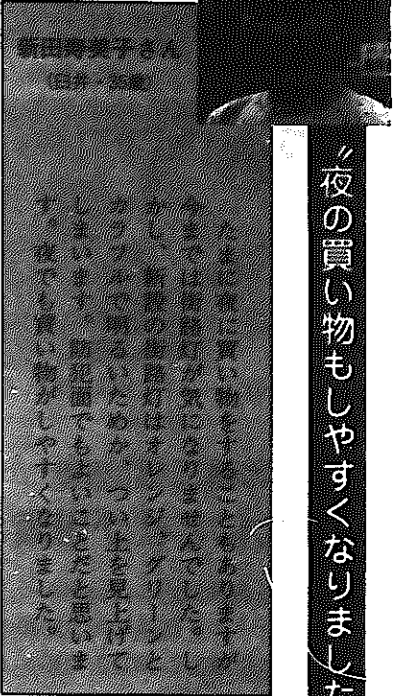 〝夜の買い物もしやすくなりました
たまに夜に買い物をすることもありますが
今までは街路灯が気になりませんでした。し
かし、新設の街路灯はオレンジ、グリーンと
カラフルで明るいためか、つい上を見上げて
しまいます。防犯面でもよいことだと思いま
す。夜でも買い物がしやすくなりました。